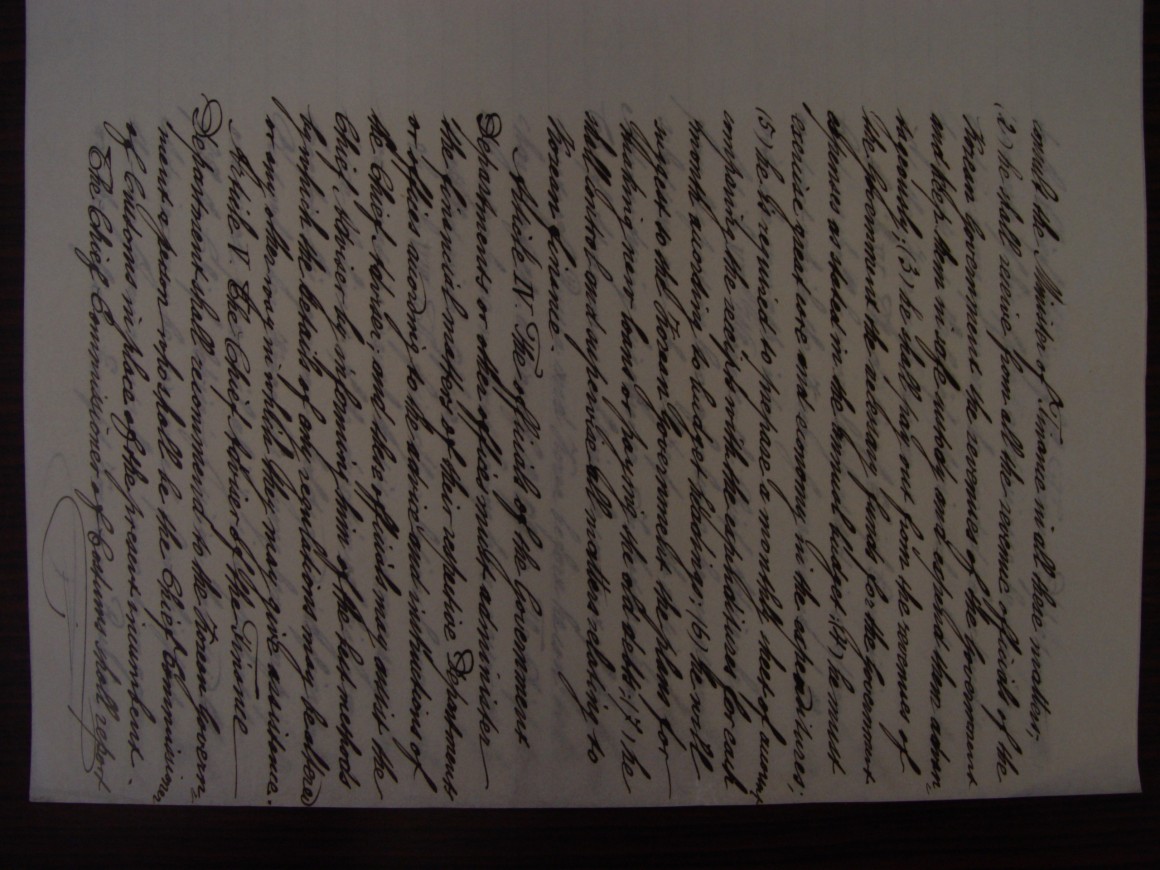 consult the Minister of Finance in all these matters;
(2) he shall receive from all the revenue officials of the
Korean Government the revenues of the Government
and keep them in safe custody and defend them acting
vigorously; (3) he shall pay out from the revenues of
the Government the necessary funds for the Government
expenses as stated in the annual budget; (4) he must
exercise great care and economy in the expenditures;
(5) he be required to prepare a monthly sheet of account
comparing the receipts with the expenditures for each
month according to budget headings; (6) he must
suggest to the Korean Government the plan for
obtaining new loans or paying the old debts; (7) he
shall control and supervise all matters relating to
Korean finance.
Article IV. The officials of the Government
Departments or other offices must administer
the financial matters of their respective Departments
or offices according to the advice and instructions of
the Chief Adviser, and these officials may assist the
Chief Adviser by informing him of the best methods
by which the details of any regulations may be altered
or any other way in which they may give assistance.
Article V. The Chief Adviser of the Finance
Department shall recommend to the Korean Govern-
ment a person who shall be the Chief Commissioner
of Customs in place of the present incumbent.
The Chief Commissioner of Customs shall report